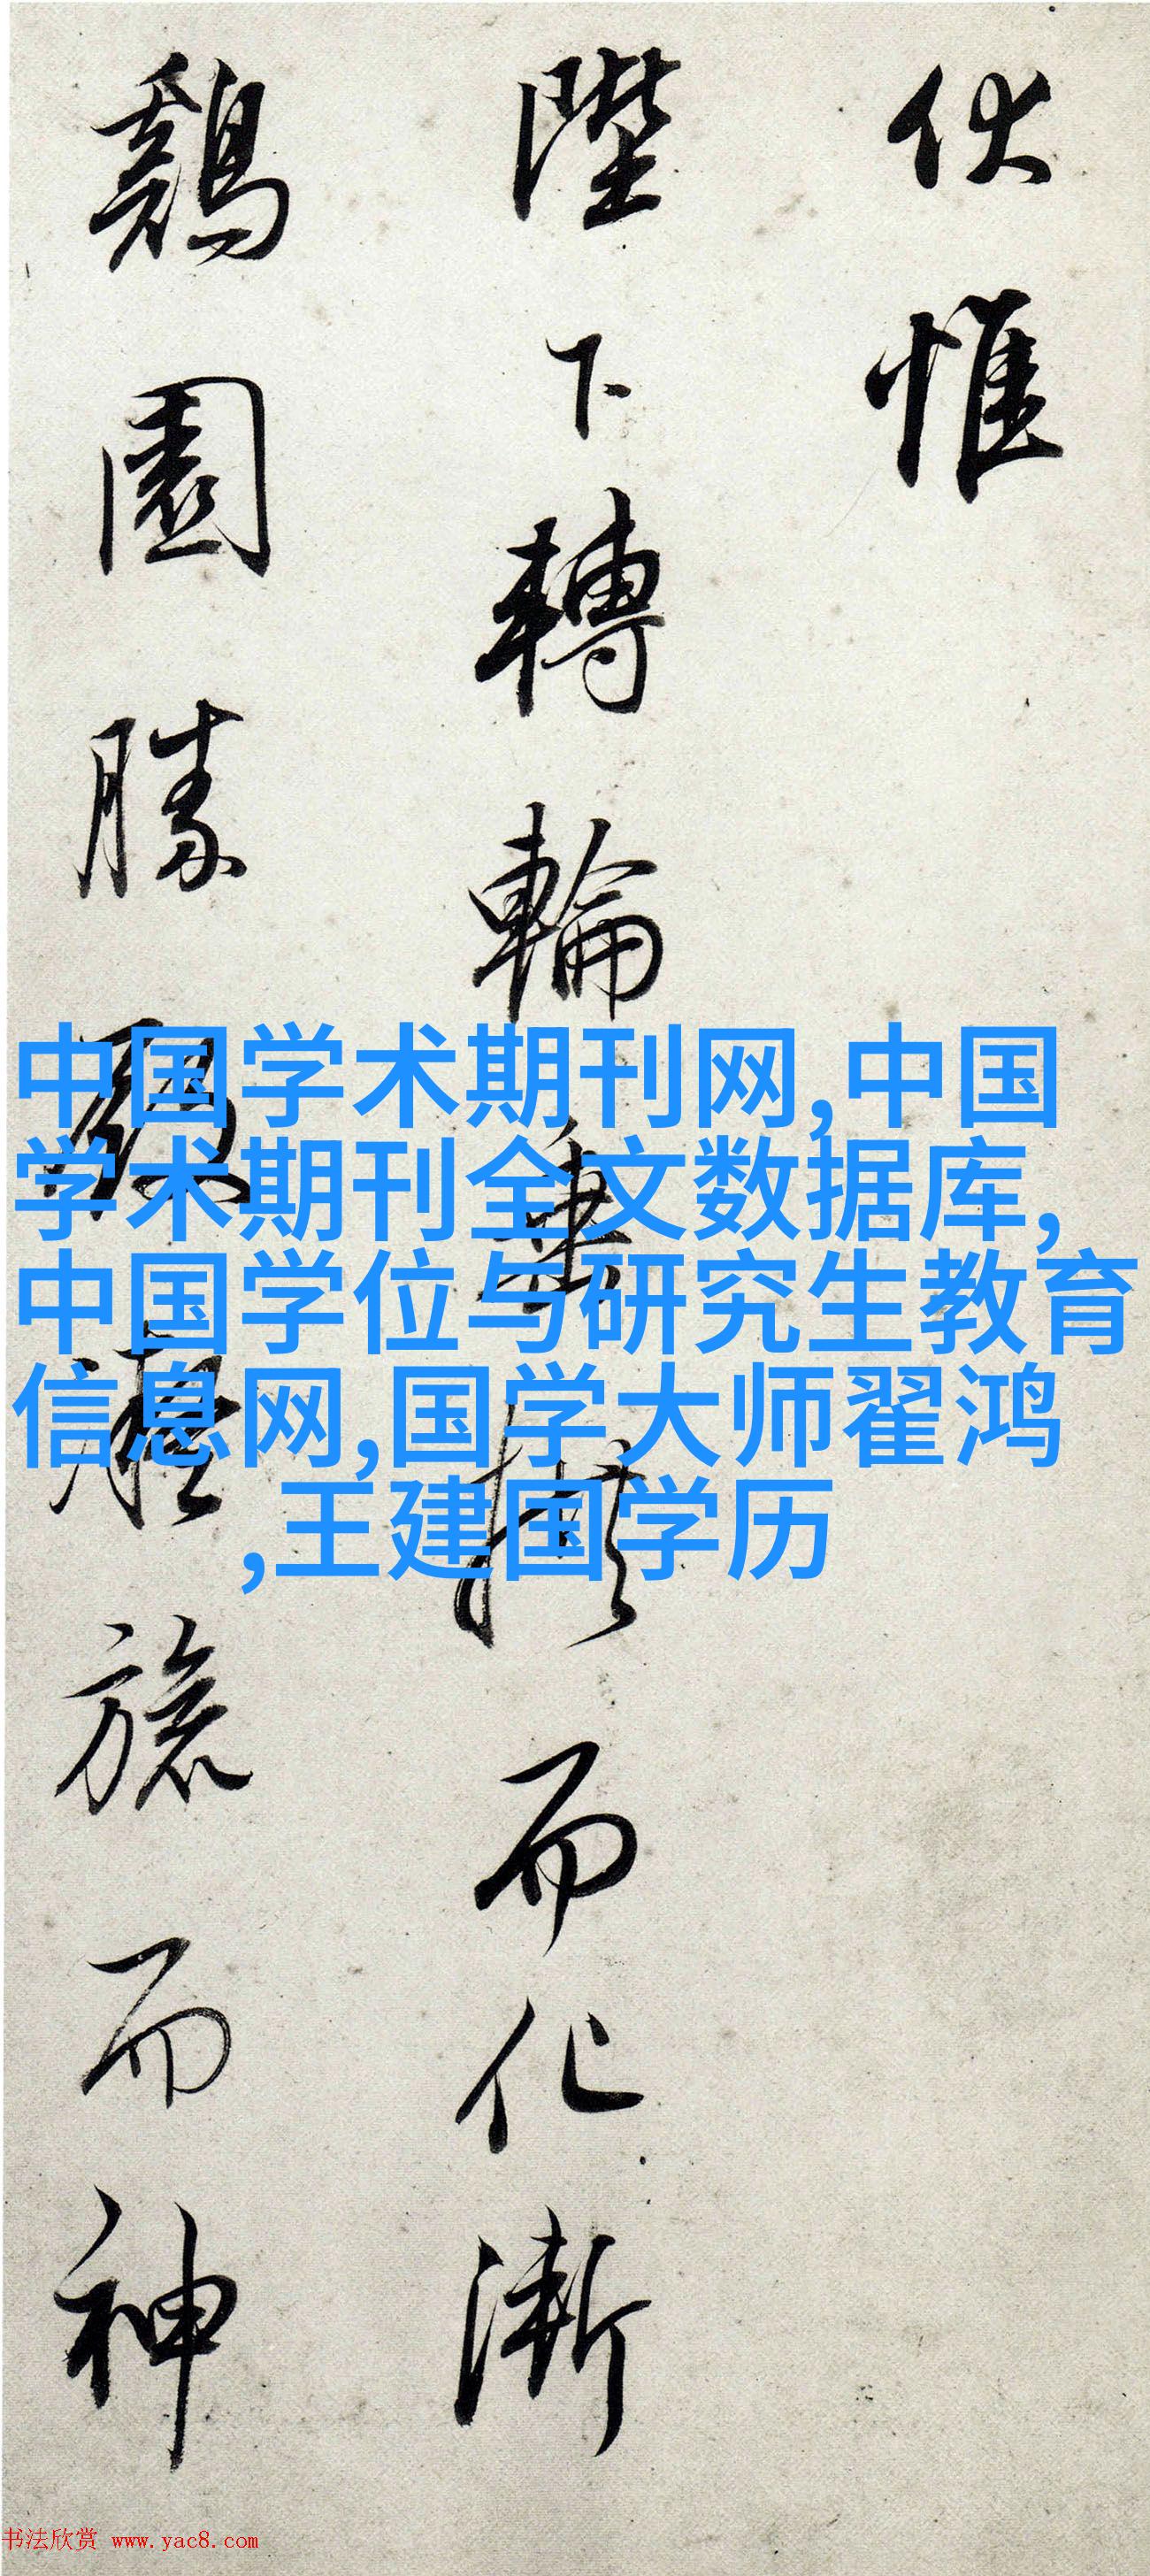 伏惟
陛下轉輪垂拱而化漸
鷄園勝殿凝旒而神
中国学术期刊网,中国
学术期刊全文数据库,
中国学位与研究生教育
信息网,国学大师翟鸿
,王建国学历
书法欣赏 www.yac8.com